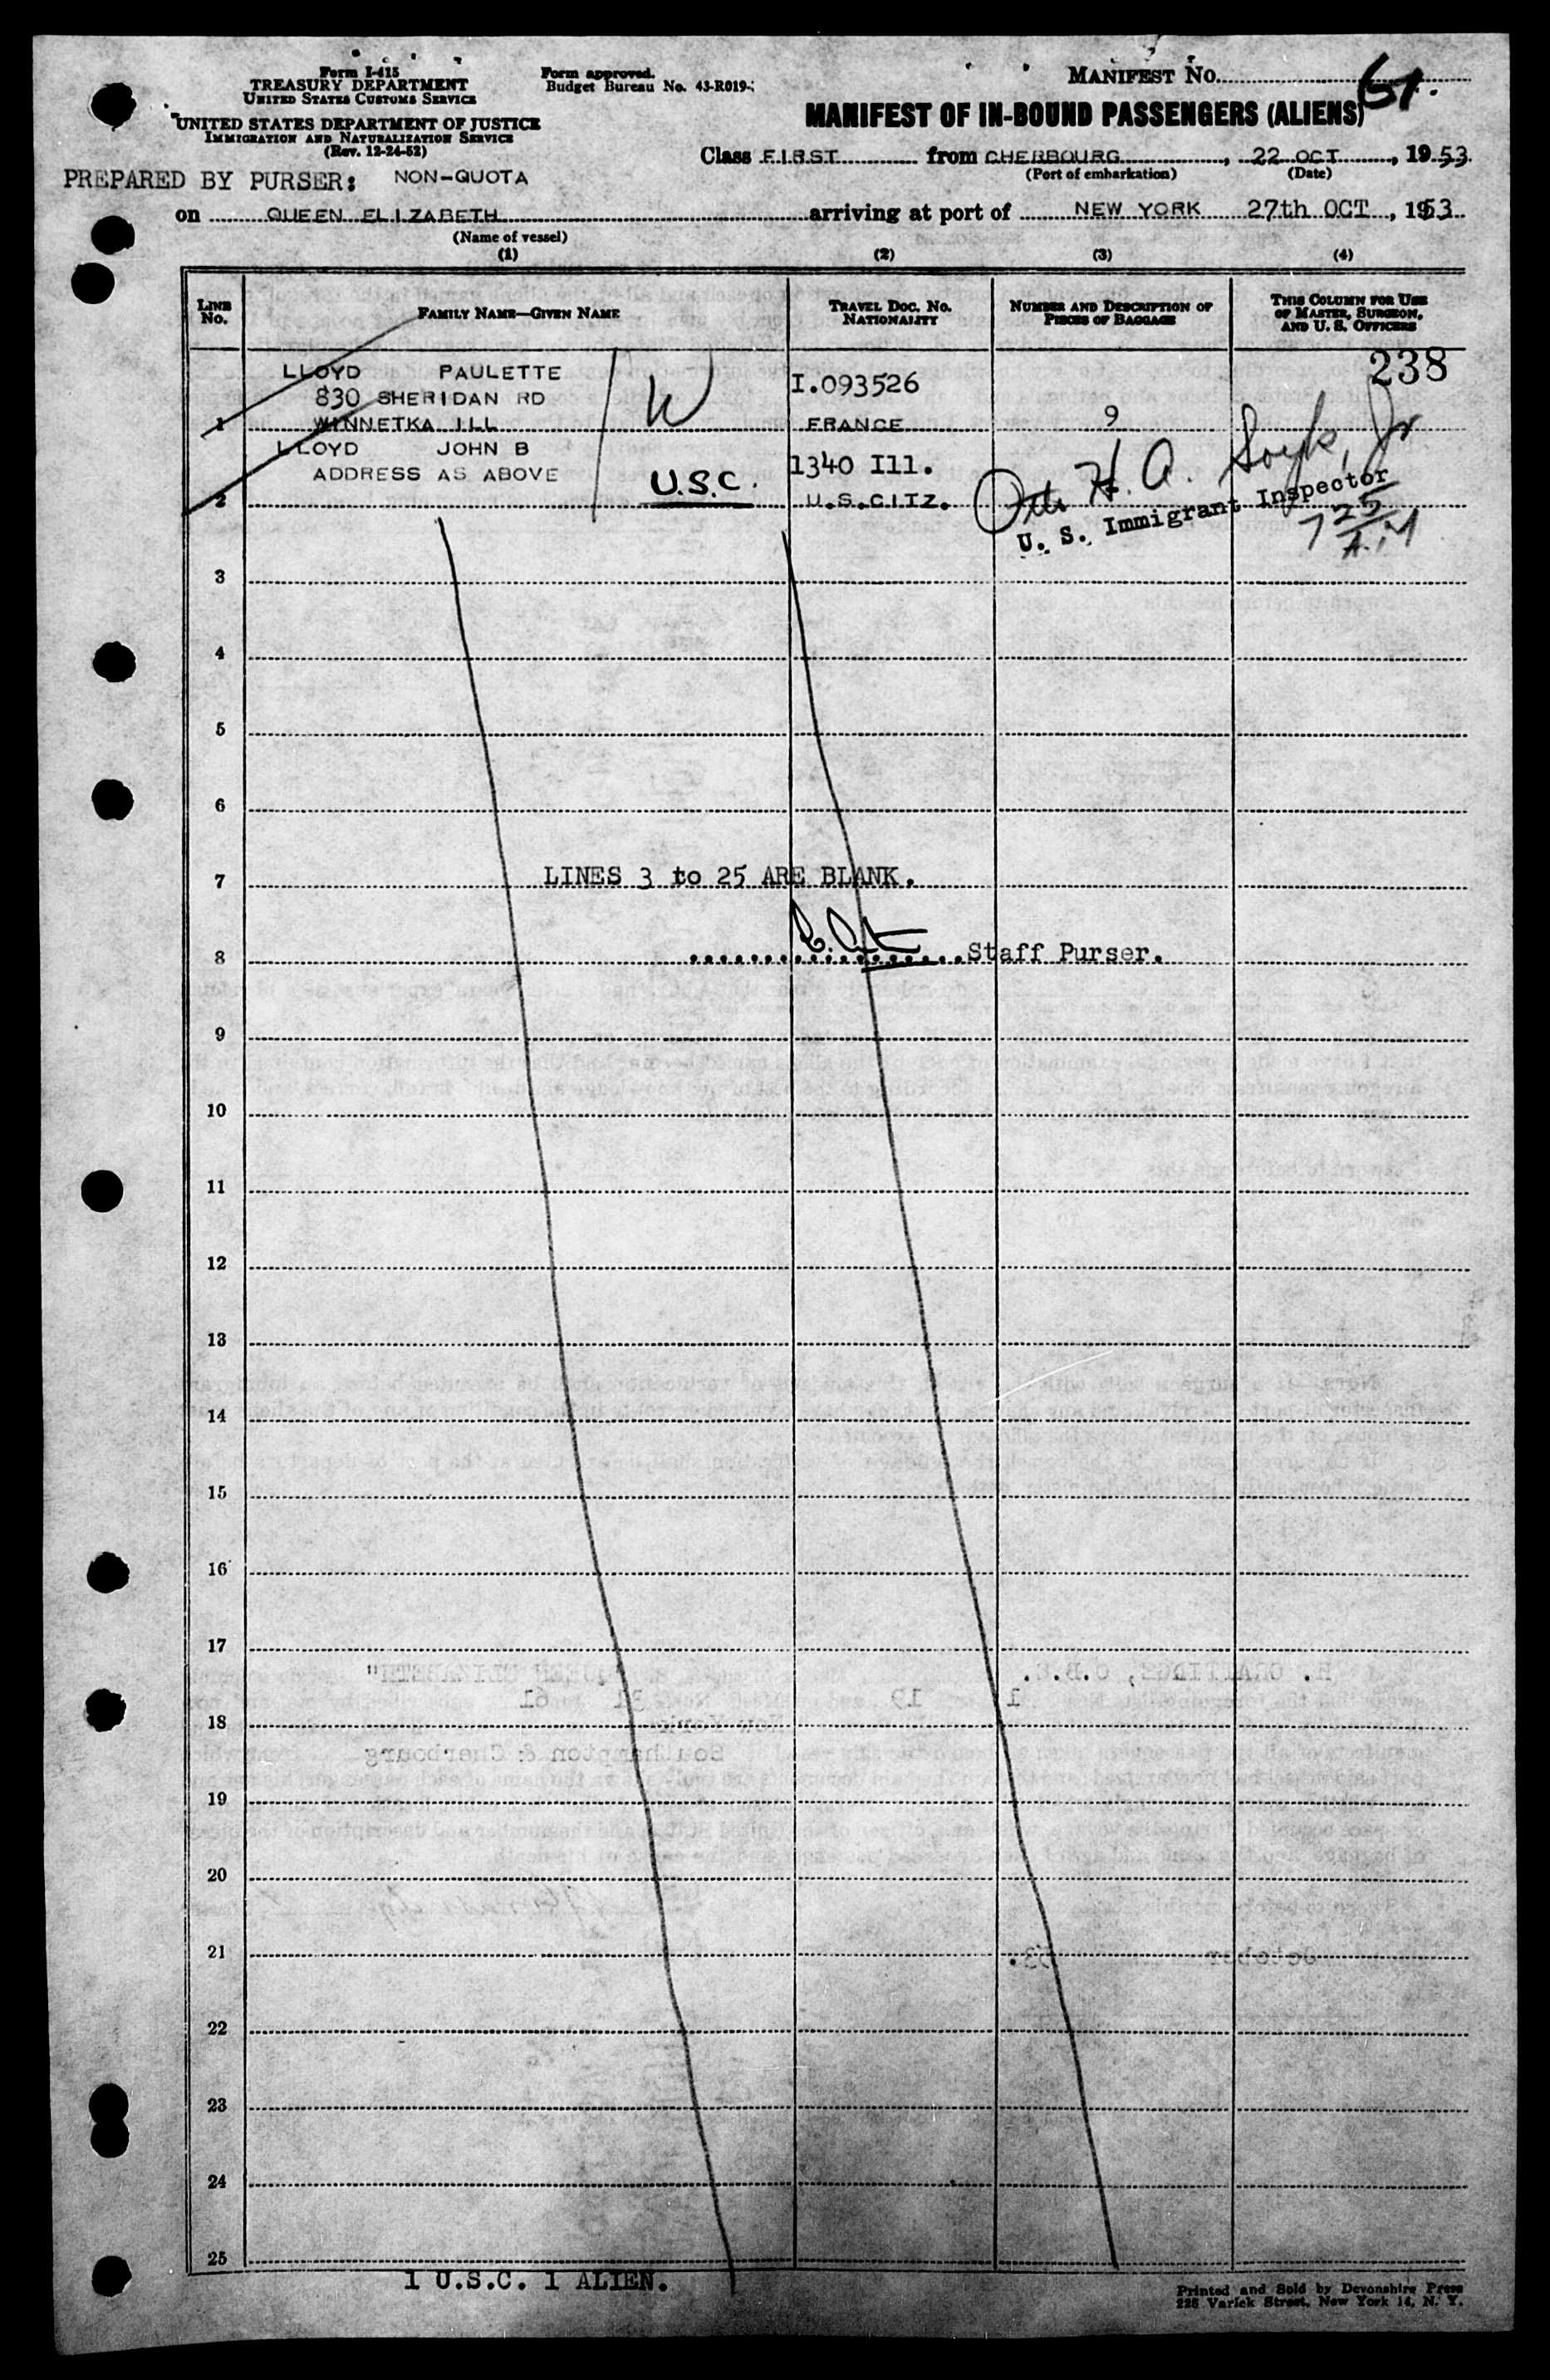 Form I-415
TREASURY DEPARTMENT
UNITED STATES CUSTOMS SERVICE
UNITED STATES DEPARTMENT OF JUSTICE
IMMIGRATION AND NATURALIZATION SERVICE
(Rev. 12-24-52)
Form approved.
Budget Bureau No. 43-R019-
MANIFEST No. 61.
MANIFEST OF IN-BOUND PASSENGERS (ALIENS)
Class FIRST from CHERBOURG, 22 OCT, 1953
(Port of embarkation) (Date)
PREPARED BY PURSER: NON-QUOTA
on QUEEN ELIZABETH arriving at port of NEW YORK 27th OCT, 1953
(Name of vessel)
(1) (2) (3) (4)
LINE No. FAMILY NAME—GIVEN NAME TRAVEL DOC. NO. NATIONALITY NUMBER AND DESCRIPTION OF PIECES OF BAGGAGE THIS COLUMN FOR USE OF MASTER, SURGEON, AND U. S. OFFICERS
238
LLOYD PAULETTE W I.093526
830 SHERIDAN RD
1 WINNETKA ILL FRANCE 9
LLOYD JOHN B 1340 Ill.
ADDRESS AS ABOVE U.S.C.
2 U.S.CITZ. H. A. Jr
U. S. Immigrant Inspector
7 25 A.M
3
4
5
6
7 LINES 3 to 25 ARE BLANK.
8 Staff Purser.
9
10
11
12
13
14
15
16
17
"QUEEN ELIZABETH"
18
Southampton & Cherbourg
19
20
21 October 53.
22
23
24
25
1 U.S.C. 1 ALIEN.
Printed and Sold by Devonshire Press
225 Varick Street, New York 14, N. Y.